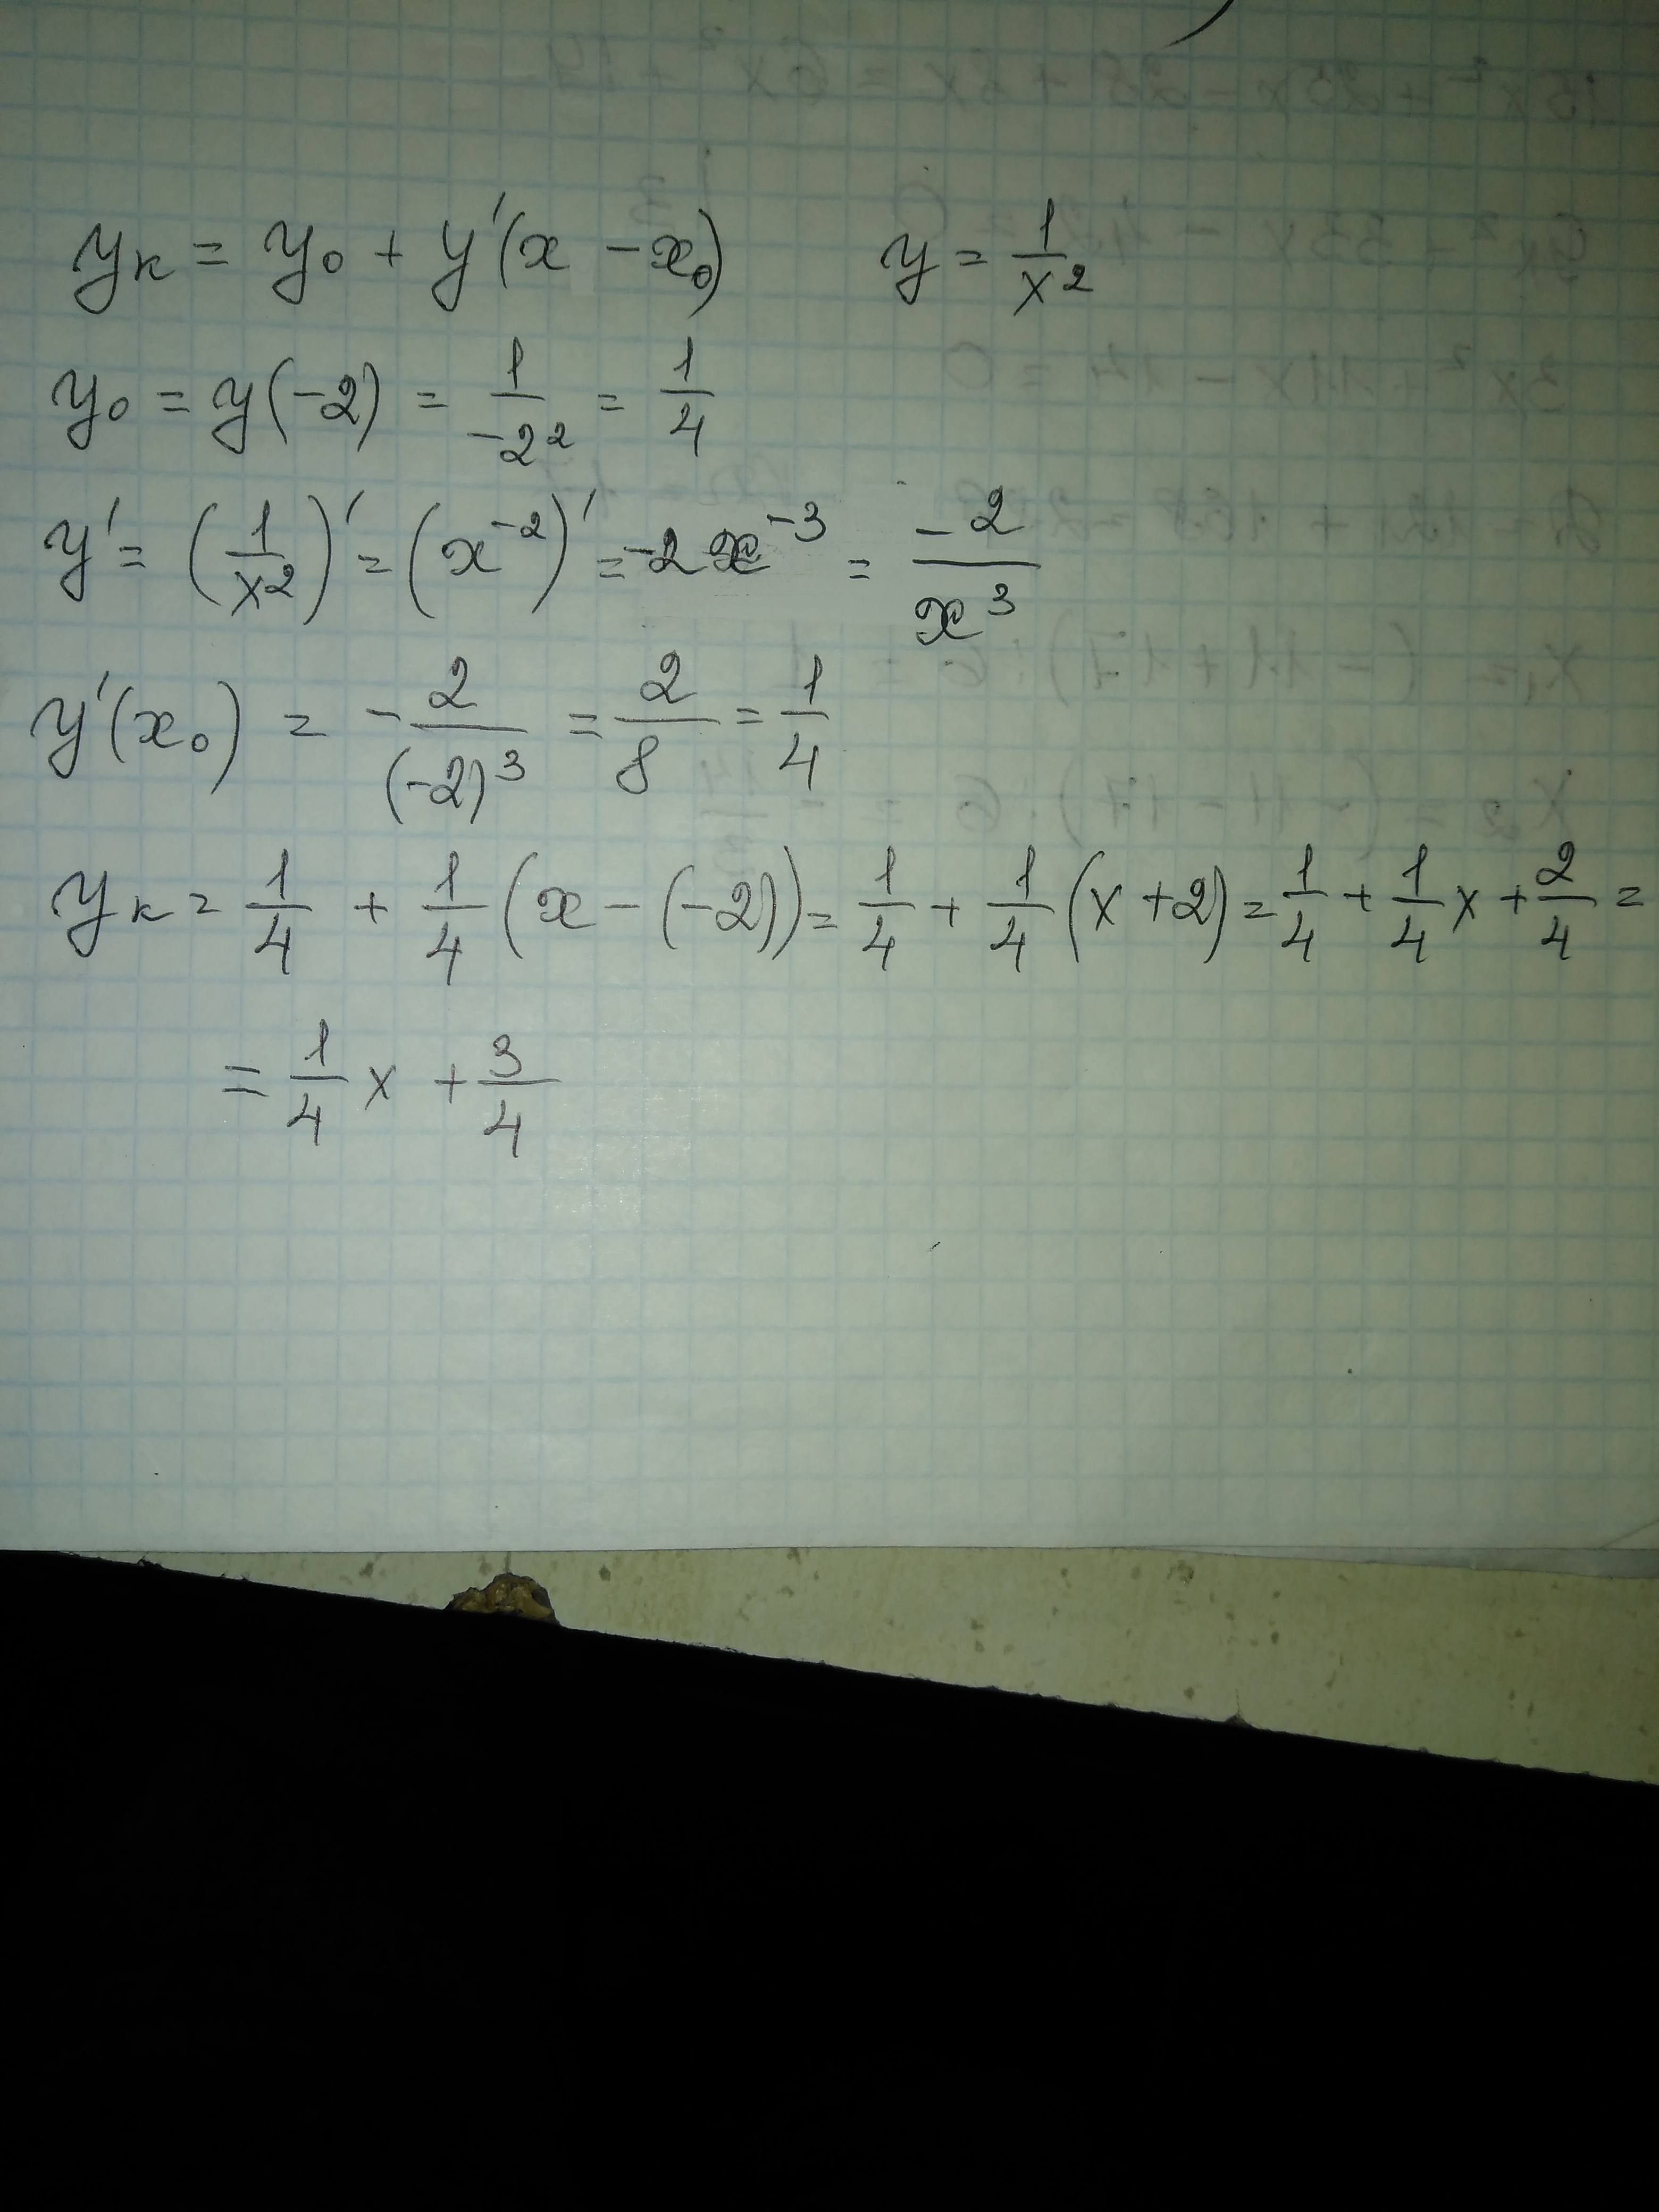 yк = y₀ + y'(x - x₀) y = 1/x²
y₀ = y(-2) = 1/-2² = 1/4
y' = (1/x²)' = (x⁻²)' = -2x⁻³ = -2/x³
y'(x₀) = -2/(-2)³ = 2/8 = 1/4
yк = 1/4 + 1/4(x - (-2)) = 1/4 + 1/4(x + 2) = 1/4 + 1/4x + 2/4 =
= 1/4x + 3/4